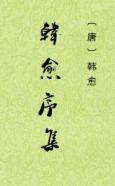 〔唐〕韩愈
韓愈序集